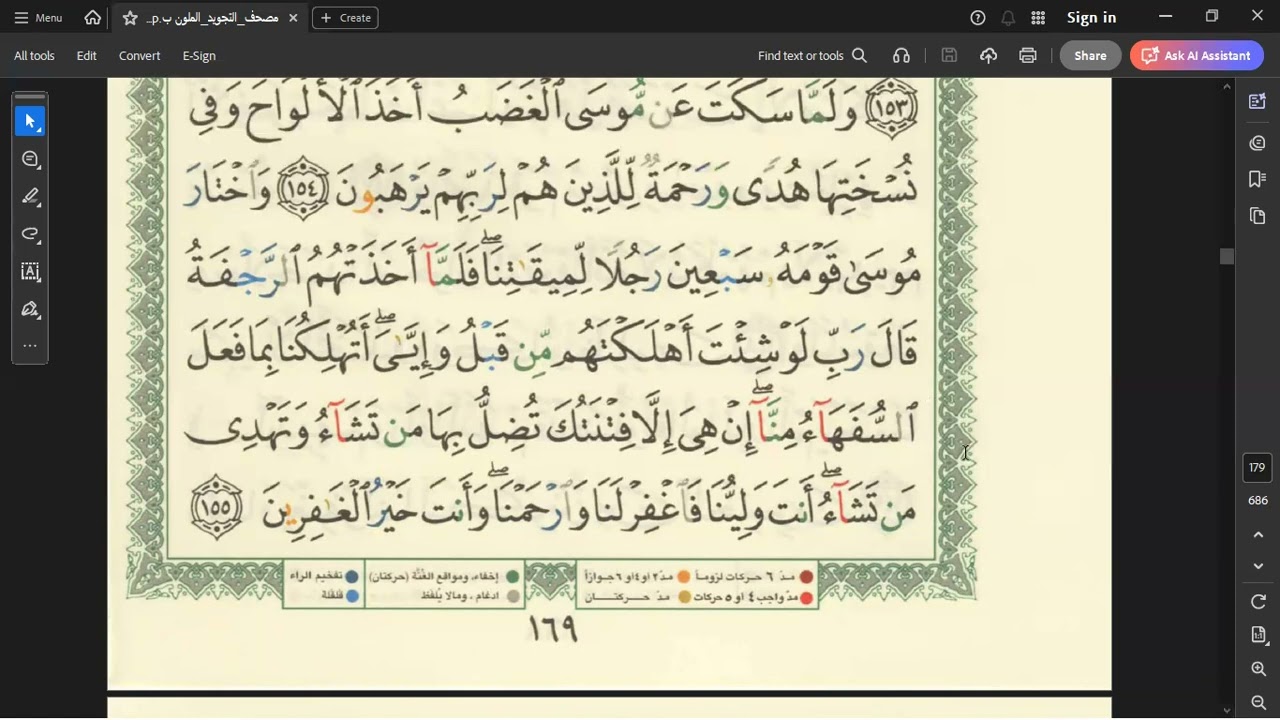 Menu
مصحف_التجويد_الملون ب.p...
Create
Sign in
All tools Edit Convert E-Sign
Find text or tools
Share
Ask AI Assistant
١٥٣ وَلَمَّا سَكَتَ عَن مُّوسَى ٱلْغَضَبُ أَخَذَ ٱلْأَلْوَاحَ وَفِى
نُسْخَتِهَا هُدًى وَرَحْمَةٌ لِّلَّذِينَ هُمْ لِرَبِّهِمْ يَرْهَبُونَ ١٥٤ وَٱخْتَارَ
مُوسَىٰ قَوْمَهُۥ سَبْعِينَ رَجُلًا لِّمِيقَـٰتِنَا ۖ فَلَمَّآ أَخَذَتْهُمُ ٱلرَّجْفَةُ
قَالَ رَبِّ لَوْ شِئْتَ أَهْلَكْتَهُم مِّن قَبْلُ وَإِيَّـٰىَ ۖ أَتُهْلِكُنَا بِمَا فَعَلَ
ٱلسُّفَهَآءُ مِنَّآ ۖ إِنْ هِىَ إِلَّا فِتْنَتُكَ تُضِلُّ بِهَا مَن تَشَآءُ وَتَهْدِى
مَن تَشَآءُ ۖ أَنتَ وَلِيُّنَا فَٱغْفِرْ لَنَا وَٱرْحَمْنَا ۖ وَأَنتَ خَيْرُ ٱلْغَـٰفِرِينَ ١٥٥
مدّ ٦ حركات لزوماً مدّ ٢ او ٤ او ٦ جوازاً
مدّ واجب ٤ او ٥ حركات مدّ حــركتــان
إخفاء، ومواقع الغُنَّة (حركتان) تفخيم الراء
ادغام ، ومالا يُلفظ قلقلة
١٦٩
179
686